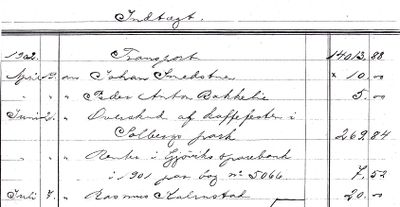 Indtægt.
1902. Transport 14013.88
April 2. an Johan Smedstuen × 10.00
" " " Peder Anton Bakkelie 5.00
Juni 2. " Overskud af kaffefesten i
Solbergs park 269.84
" " " Renter i Gjøviks sparebank
i 1901 paa bog nº 5066 7.52
Juli 7. " Rasmus Kalrustad 20.00